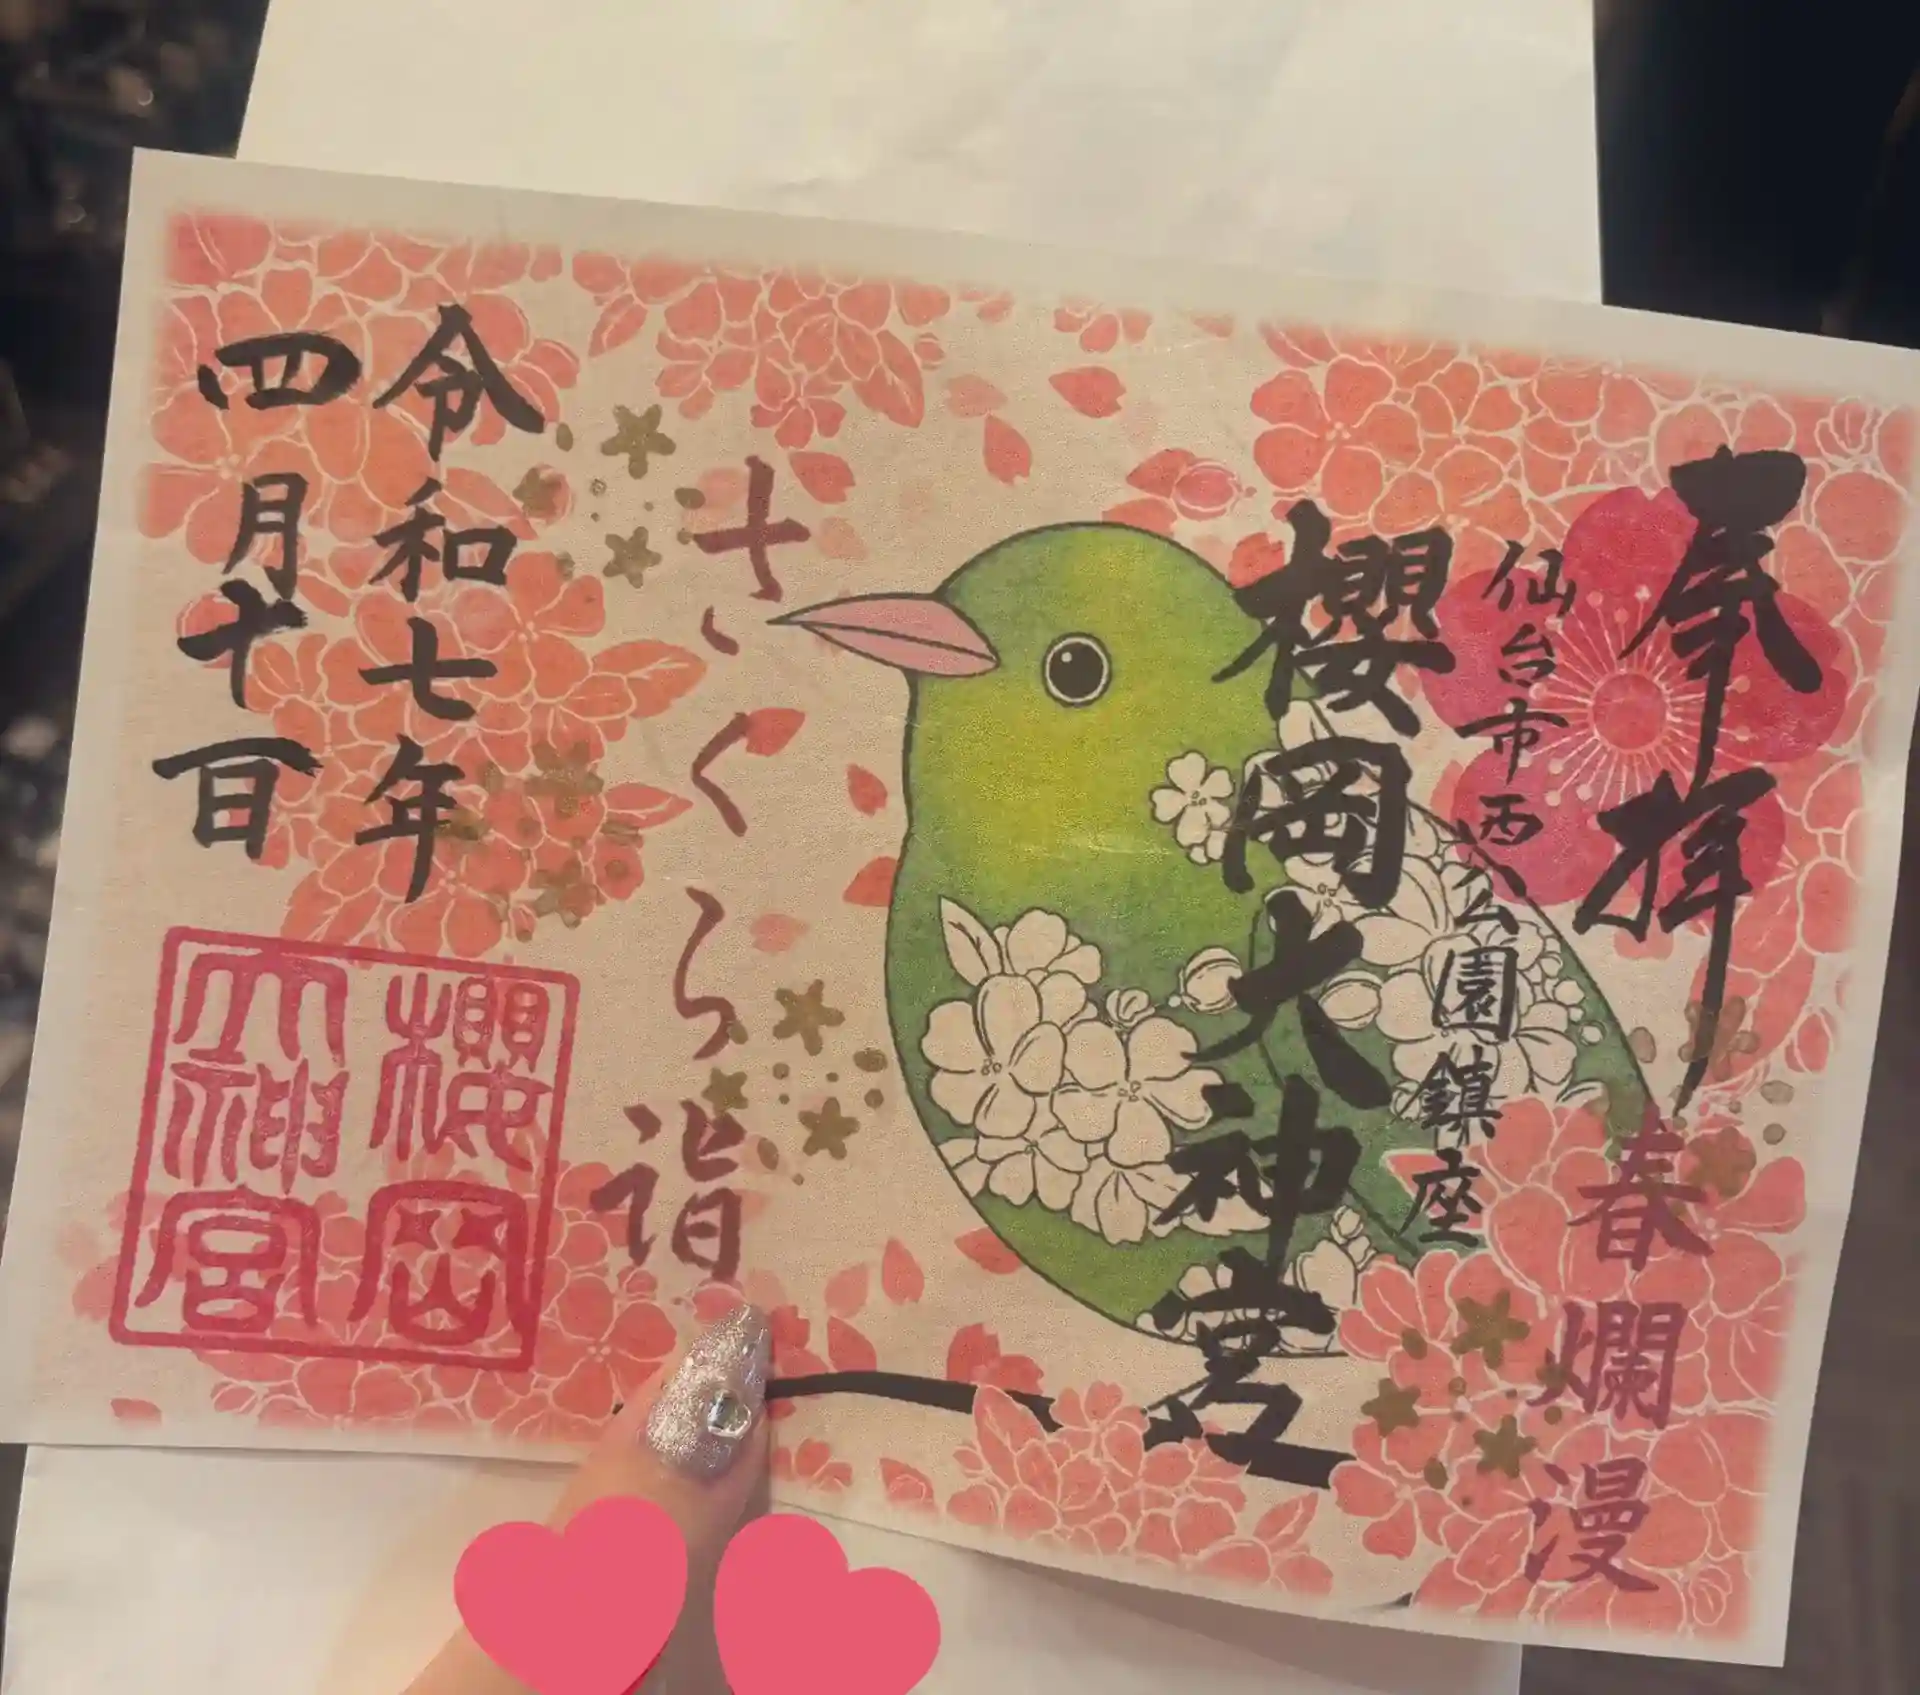 奉拝
春爛漫
仙台市西公園鎮座
櫻岡大神宮
さくら詣
令和七年
四月十一日
櫻岡
大神宮